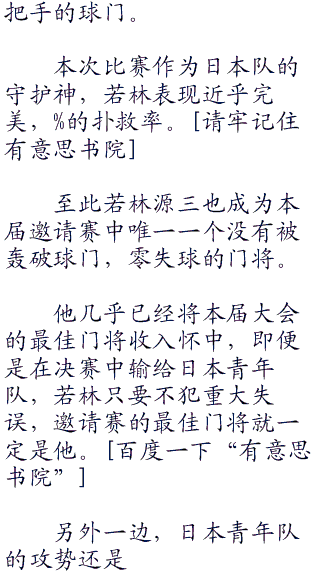 把手的球门。
本次比赛作为日本队的
守护神，若林表现近乎完
美，%的扑救率。[请牢记住
有意思书院]
至此若林源三也成为本
届邀请赛中唯一一个没有被
轰破球门，零失球的门将。
他几乎已经将本届大会
的最佳门将收入怀中，即便
是在决赛中输给日本青年
队，若林只要不犯重大失
误，邀请赛的最佳门将就一
定是他。[百度一下“有意思
书院”]
另外一边，日本青年队
的攻势还是